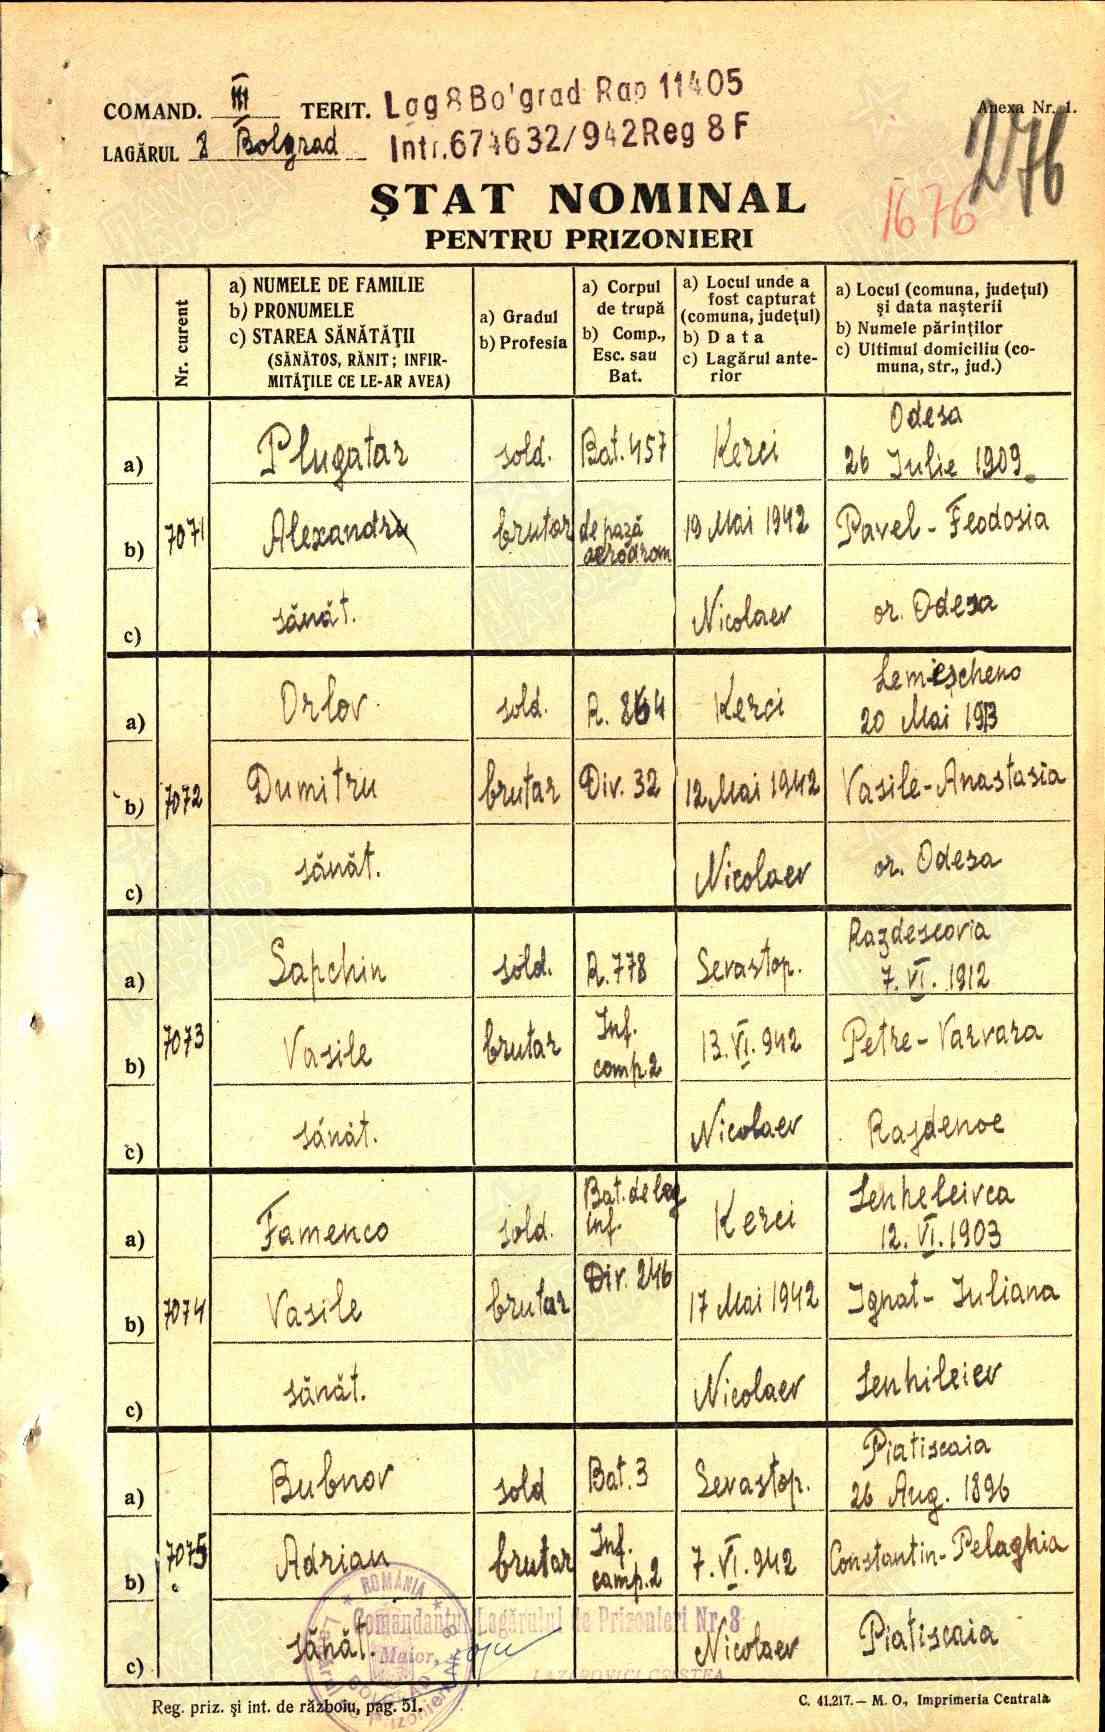 COMAND. III TERIT.
Lag 8 Bolgrad Rap 11405
Anexa Nr. 1.
LAGĂRUL 8 Bolgrad
Intr. 674632/942 Reg 8 F
276
1676
ȘTAT NOMINAL
PENTRU PRIZONIERI
Nr. curent
a) NUMELE DE FAMILIE
b) PRONUMELE
c) STAREA SĂNĂTĂȚII
(SĂNĂTOS, RĂNIT; INFIR-
MITĂȚILE CE LE-AR AVEA)
a) Gradul
b) Profesia
a) Corpul
de trupă
b) Comp.,
Esc. sau
Bat.
a) Locul unde a
fost capturat
(comuna, județul)
b) Data
c) Lagărul ante-
rior
a) Locul (comuna, județul)
și data nașterii
b) Numele părinților
c) Ultimul domiciliu (co-
muna, str., jud.)
7071
a) Plugatar sold. Bat. 457 Kerci Odesa
26 Iulie 1909
b) Alexandru brutar de pază
aerodrom 19 Mai 1942 Pavel - Feodosia
c) sănăt. Nicolaev or. Odesa
7072
a) Orlov sold. R. 864 Kerci Lemieșcheno
20 Mai 1913
b) Dumitru brutar Div. 32 12 Mai 1942 Vasile - Anastasia
c) sănăt. Nicolaev or. Odesa
7073
a) Sapchin sold. R. 778 Sevastop. Razdescovia
7. VI. 1912
b) Vasile brutar Inf.
comp. 2 13. VI. 942 Petre - Varvara
c) sănăt. Nicolaev Rasdenoe
7074
a) Famenco sold. Bat. de leg
inf. Kerci Senheleivca
12. VI. 1903
b) Vasile brutar Div. 246 17 Mai 1942 Ignat - Iuliana
c) sănăt. Nicolaev Senhileiev
7075
a) Bubnov sold Bat. 3 Sevastop. Piatiscaia
26 Aug. 1896
b) Adrian brutar Inf.
comp. 2 7. VI. 942 Constantin - Pelaghia
c) sănăt. Nicolaev Piatiscaia
ROMÂNIA
Comandantul Lagărului de Prizonieri Nr. 8
Maior,
LAZAROVICI CRISTEA
Reg. priz. și int. de războiu, pag. 51.
C. 41.217. — M. O., Imprimeria Centrală